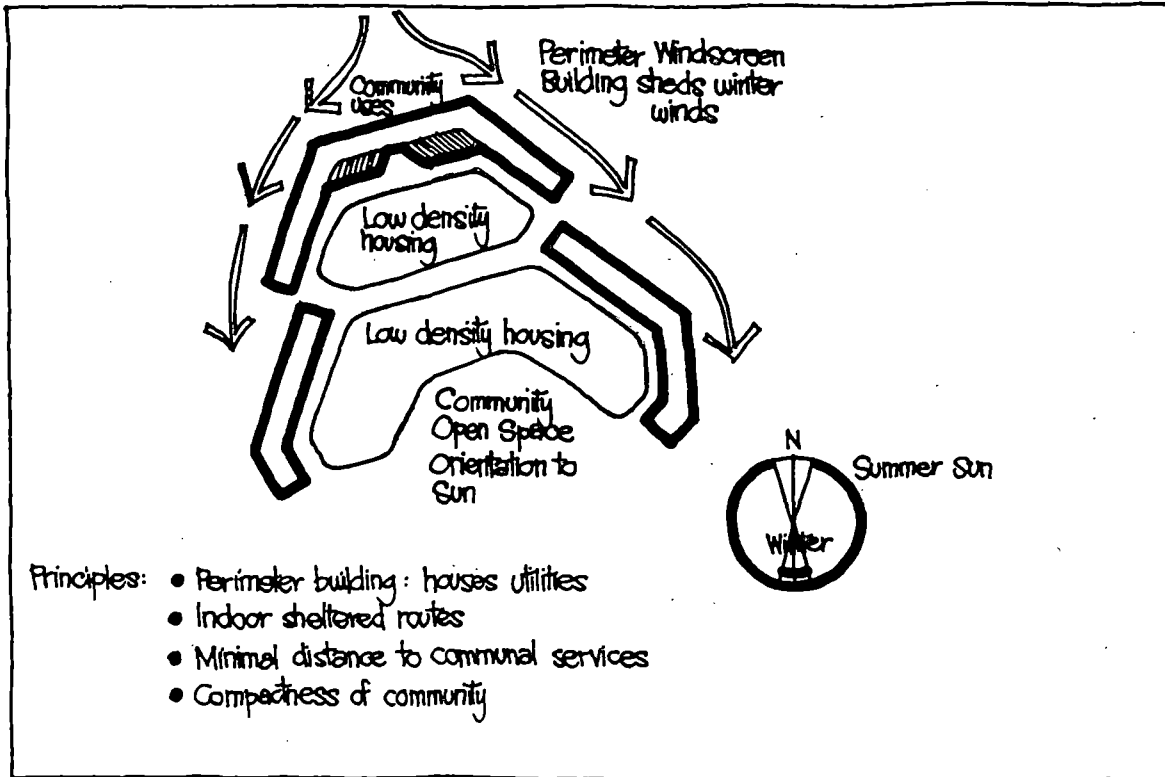 Perimeter Windscreen
Building sheds winter
winds
Community
uses
Low density
housing
Low density housing
Community
Open Space
Orientation to
Sun
N
Summer Sun
Winter
Principles: • Perimeter building: houses utilities
• Indoor sheltered routes
• Minimal distance to communal services
• Compactness of community